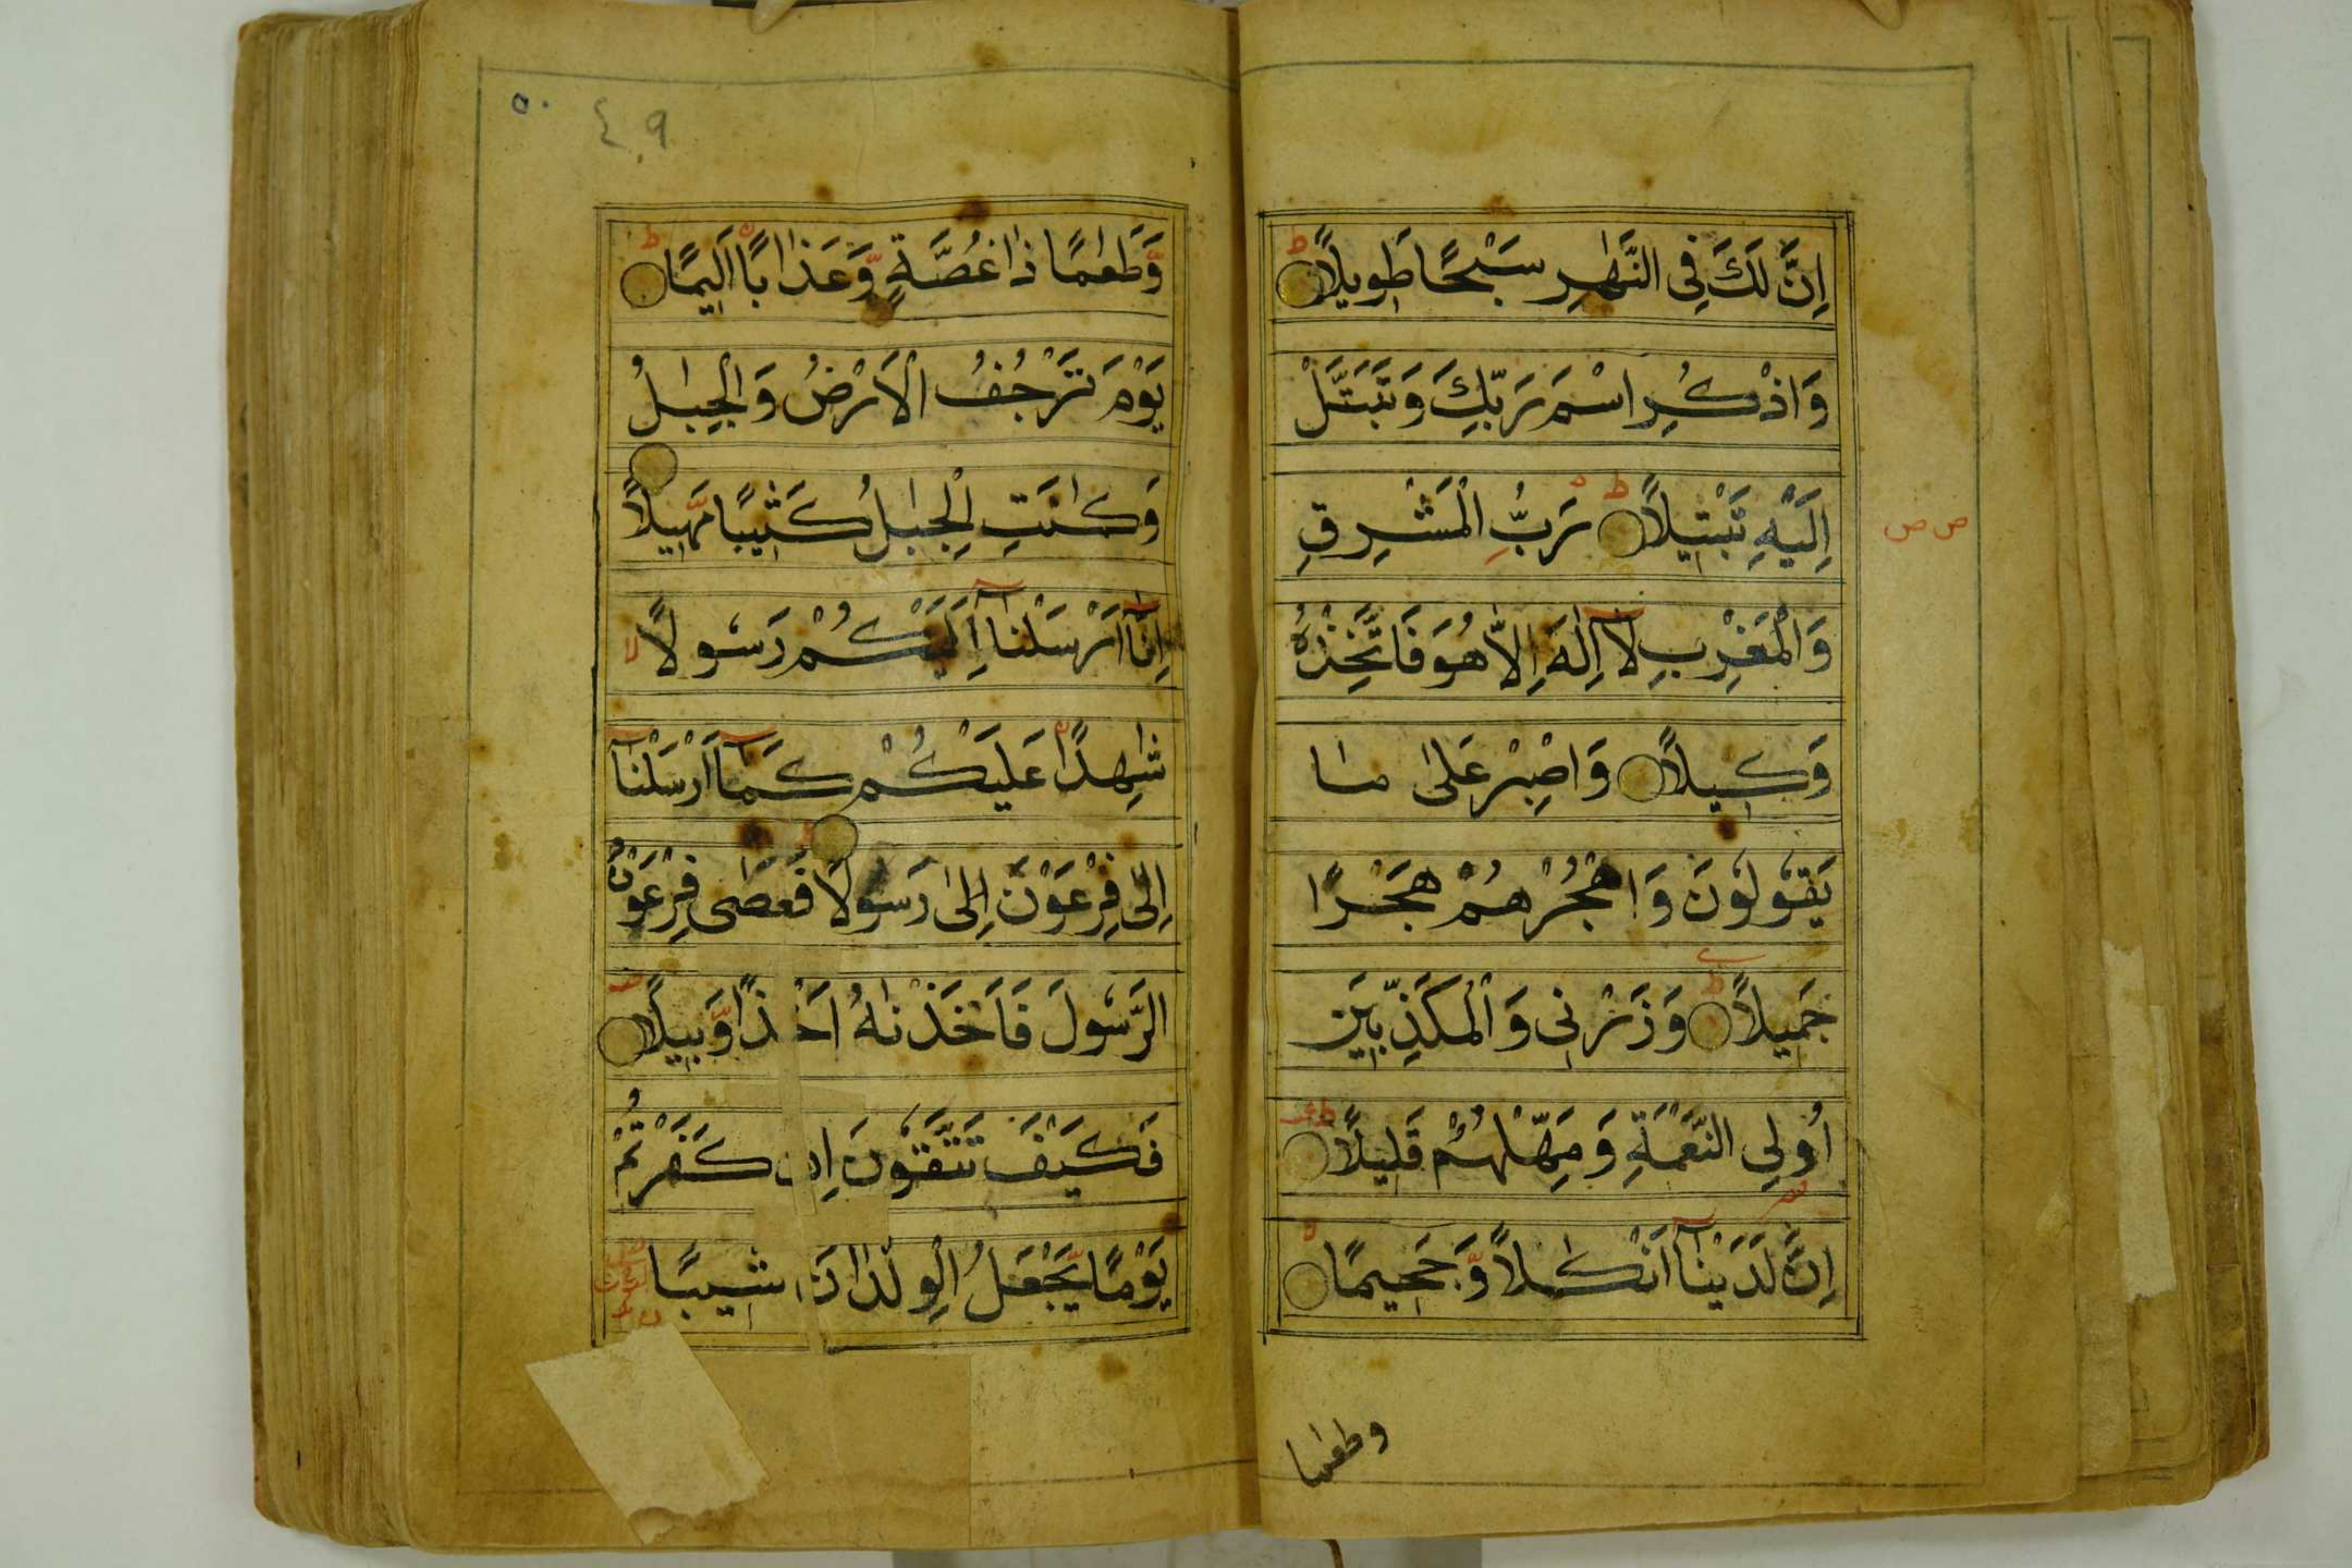 اِنَّ لَكَ فِى النَّهٰرِ سَبْحًا طَوِيلًا
وَاذْكُرِ اسْمَ رَبِّكَ وَتَبَتَّلْ
اِلَيْهِ تَبْتِيلًا رَبُّ الْمَشْرِقِ
وَالْمَغْرِبِ لَآ اِلٰهَ اِلَّا هُوَ فَاتَّخِذْهُ
وَكِيلًا وَاصْبِرْ عَلٰى مٰا
يَقُولُونَ وَاهْجُرْهُمْ هَجْرًا
جَمِيلًا وَذَرْنِى وَالْمُكَذِّبِينَ
اُولِى النَّعْمَةِ وَمَهِّلْهُمْ قَلِيلًا
اِنَّ لَدَيْنٰآ اَنْكٰلًا وَّجَحِيمًا
وطعٰما
٥٠
٤٠٩
وَّطَعٰمًا ذٰا غُصَّةٍ وَّعَذٰابًا اَلِيمًا
يَوْمَ تَرْجُفُ الْاَرْضُ وَالْجِبٰلُ
وَكٰانَتِ الْجِبٰلُ كَثِيبًا مَّهِيلًا
اِنَّآ اَرْسَلْنٰآ اِلَيْكُمْ رَسُولًا
شٰهِدًا عَلَيْكُمْ كَمَآ اَرْسَلْنٰآ
اِلٰى فِرْعَوْنَ اِلٰى رَسُولًا فَعَصٰى فِرْعَوْنُ
الرَّسُولَ فَاَخَذْنٰهُ اَخْذًا وَّبِيلًا
فَكَيْفَ تَتَّقُونَ اِن كَفَرْتُمْ
يَوْمًا يَّجْعَلُ الْوِلْدٰانَ شِيبًا